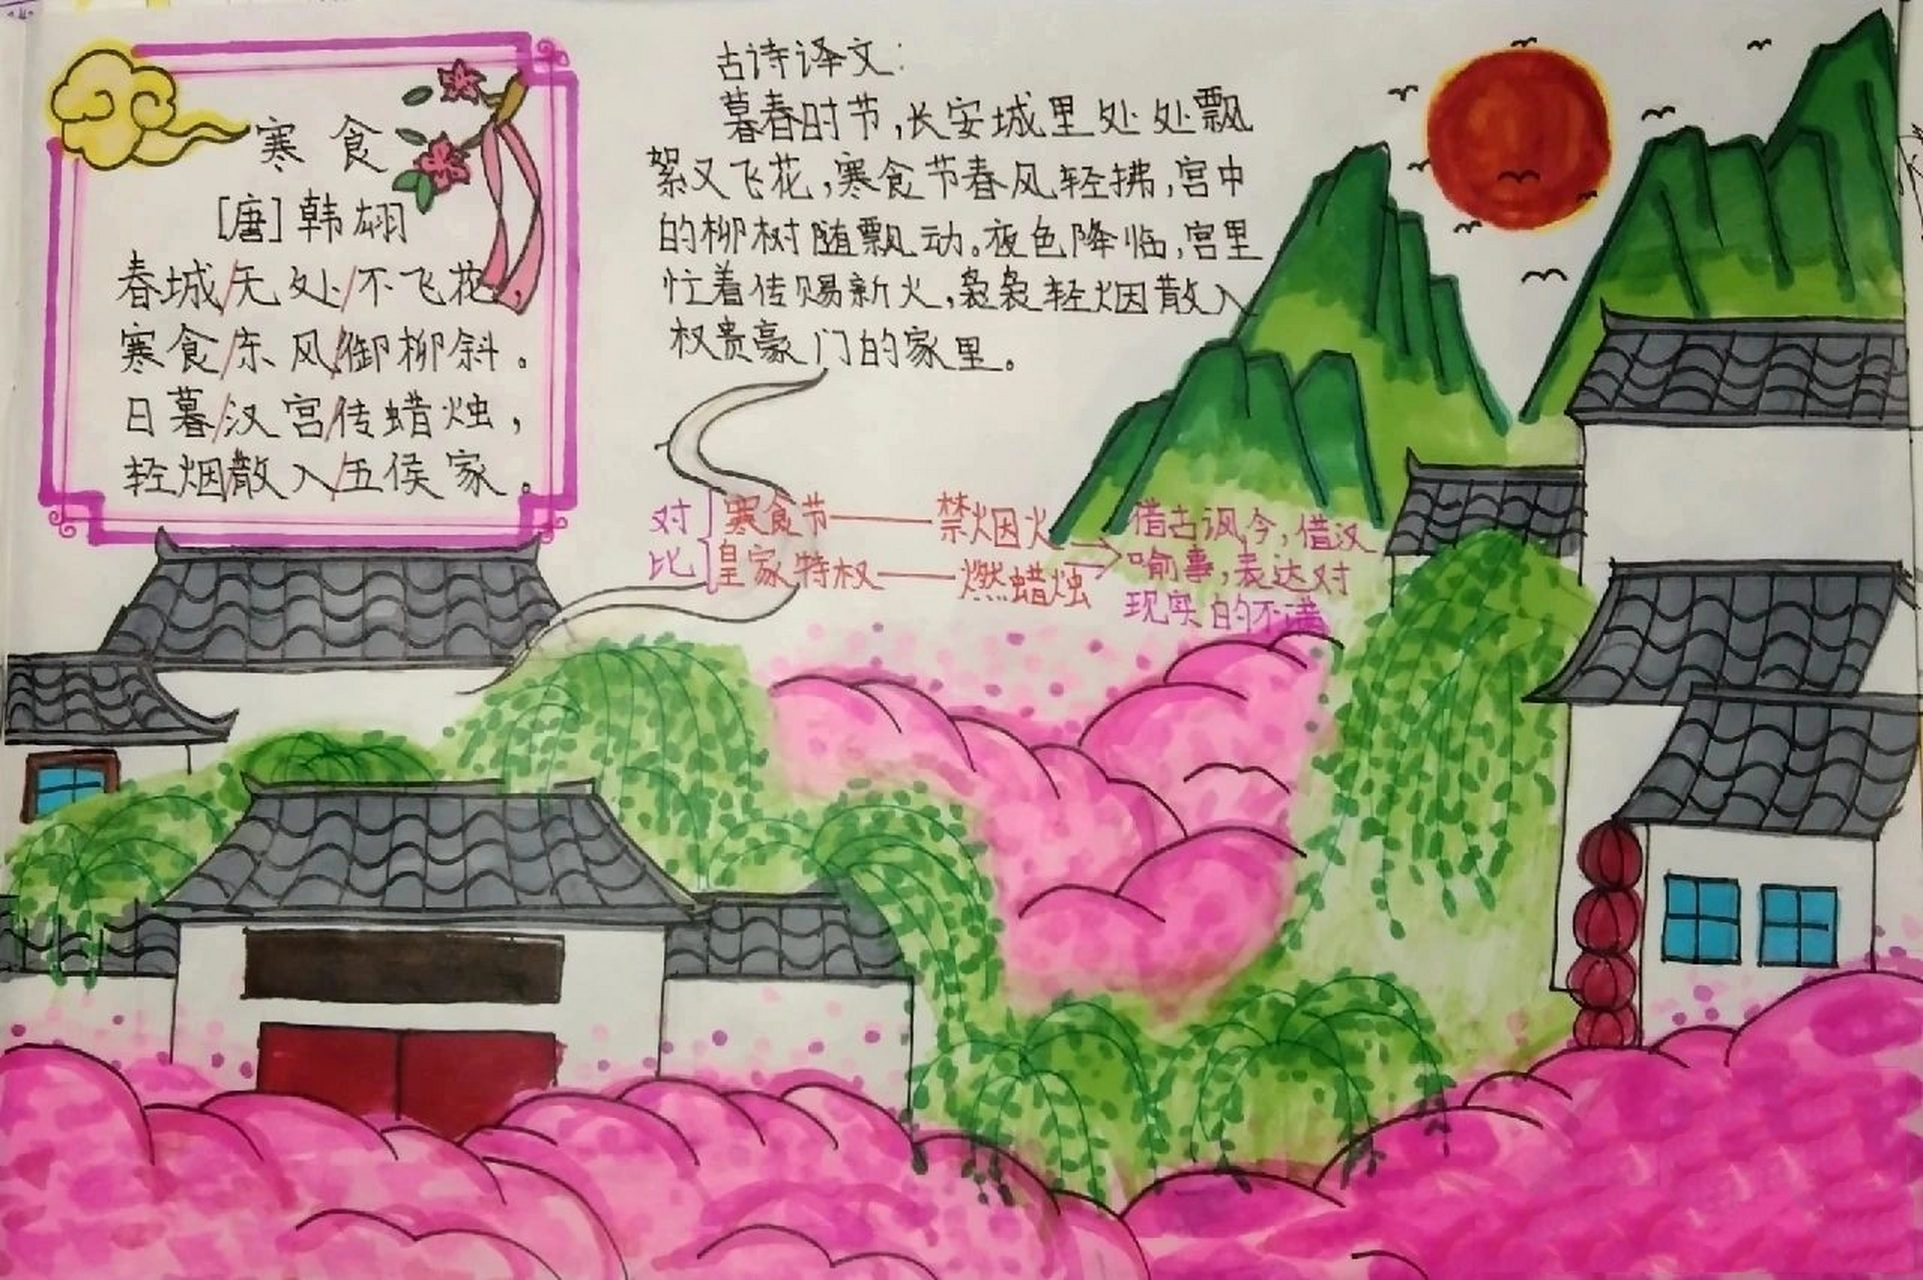 寒食
[唐]韩翃
春城/无处/不飞花,
寒食/东风/御柳斜。
日暮/汉宫/传蜡烛,
轻烟/散入/五侯家。
古诗译文:
暮春时节,长安城里处处飘
絮又飞花,寒食节春风轻拂,宫中
的柳树随飘动。夜色降临,宫里
忙着传赐新火,袅袅轻烟散入
权贵豪门的家里。
对比
寒食节——禁烟火
皇家特权——燃蜡烛
借古讽今,借汉
喻事,表达对
现实的不满